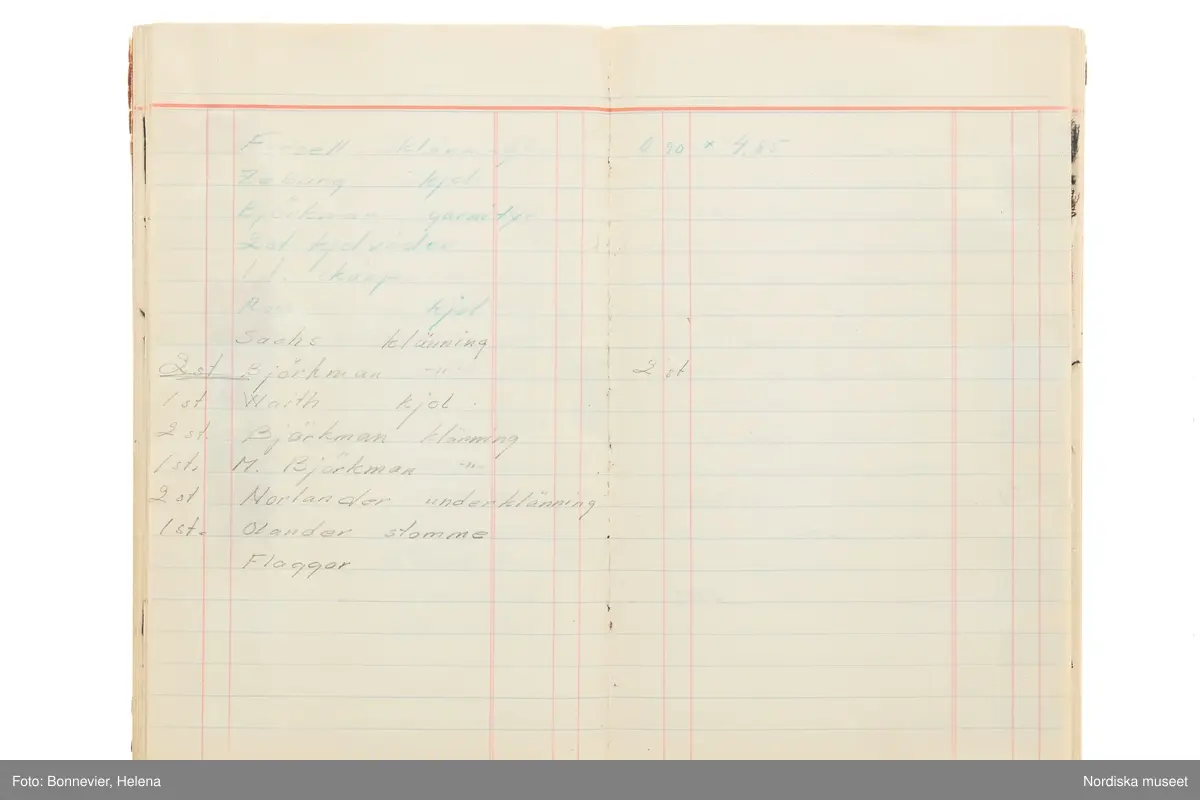 Forsell klänning 0,90 x 4,85
kjol
Björkman garnityr
2 st kjolvåder
kjol
Sachs klänning
2 st Björkman -"- 2 st
1 st Waith kjol
2 st. Björkman klänning
1 st. M. Björkman -"-
2 st Norlander underklänning
1 st. Olander stomme
Flaggor
Foto: Bonnevier, Helena Nordiska museet